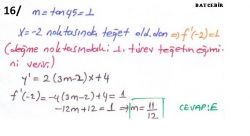 BAYCEBİR
16/ m=tan45=1
x=-2 noktasında teğet old.dan → f'(-2)=1
(değme noktasındaki 1. türev teğetin eğimi-
ni verir.)
y'=2(3m-2)x+4
f'(-2)=-4(3m-2)+4=1
-12m+12=1 ⇒ m=11/12 CEVAP:E